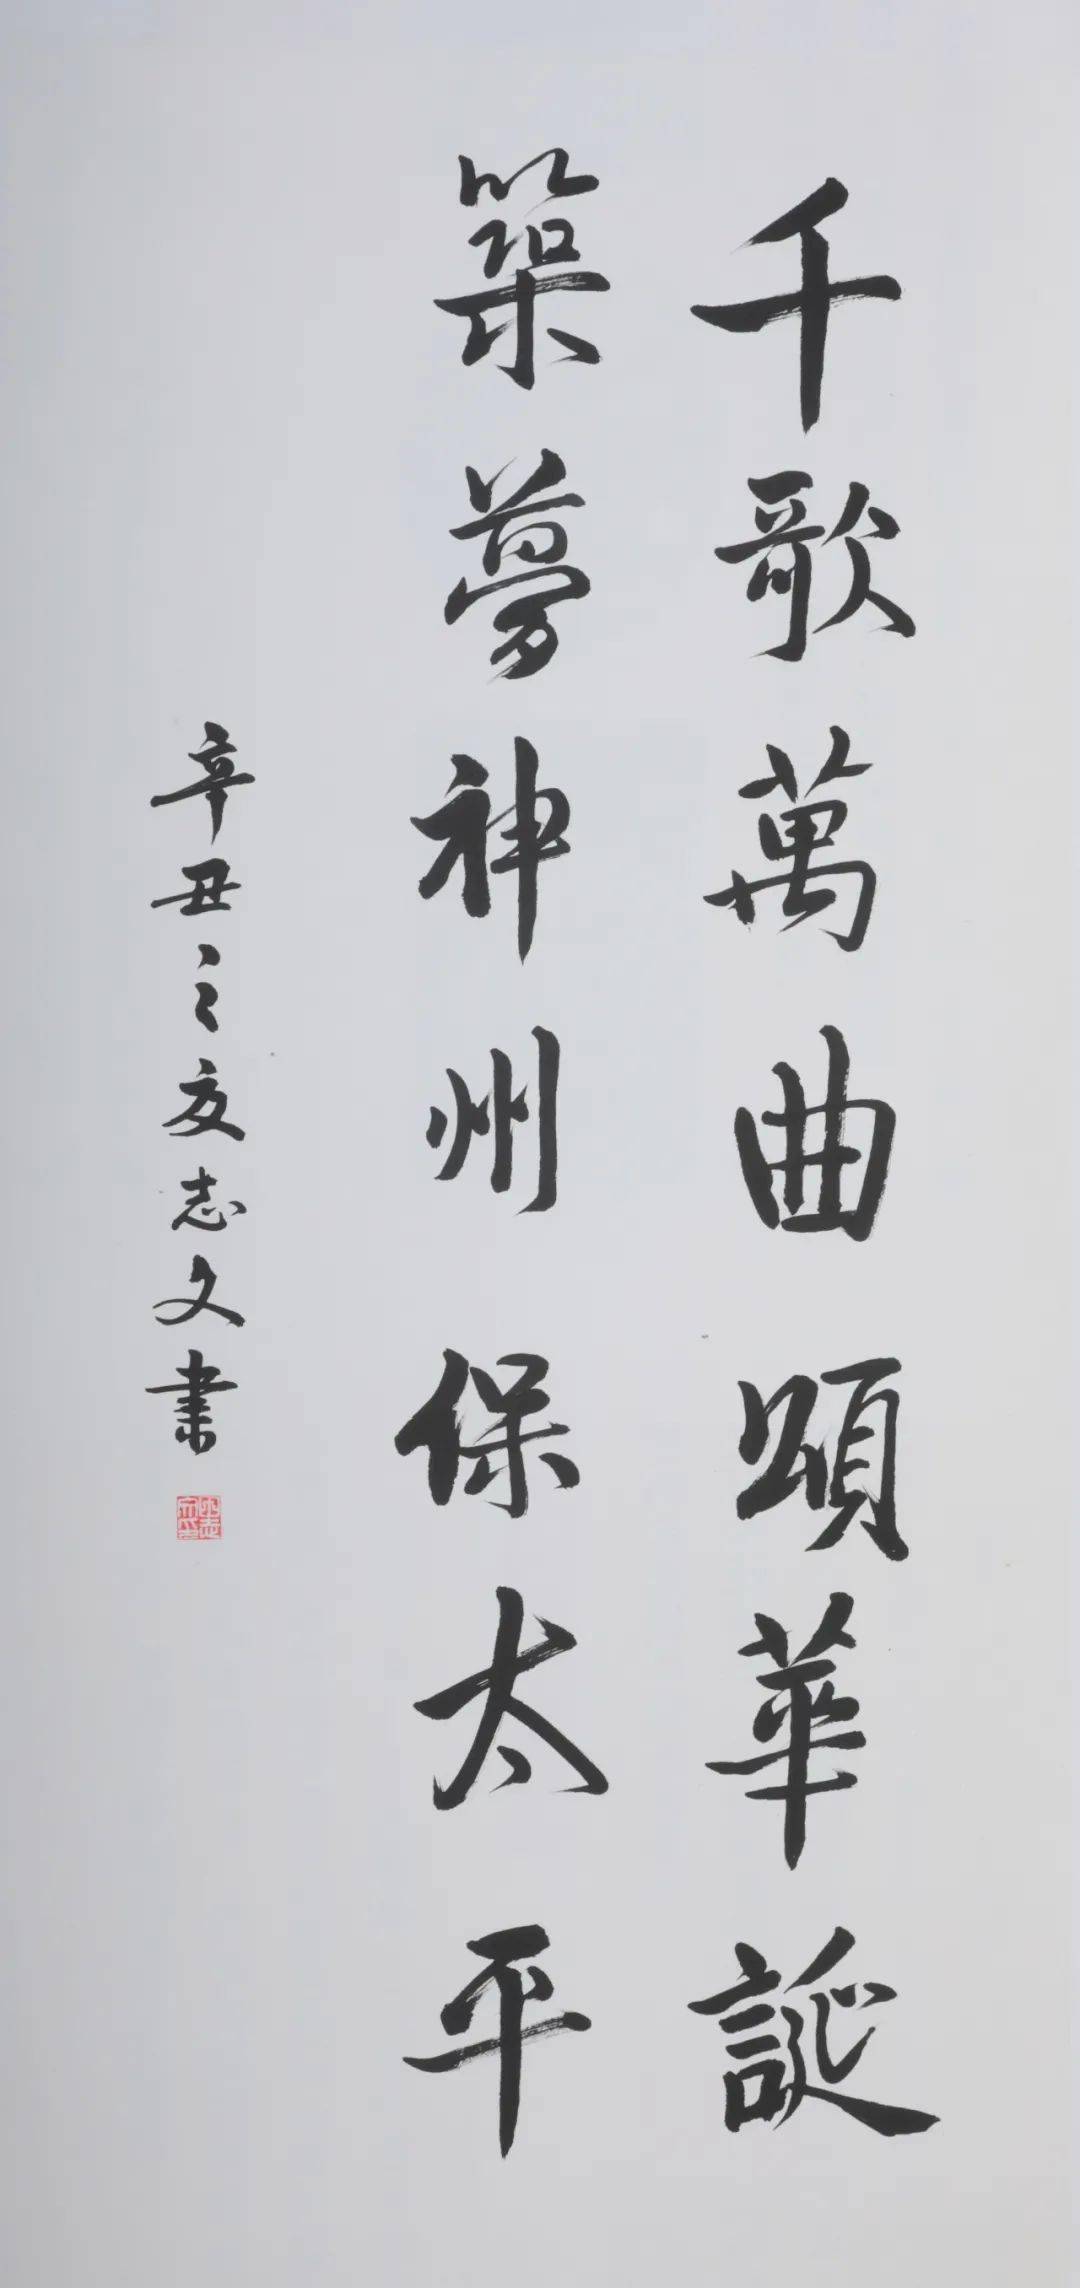 千歌萬曲頌華誕
築夢神州保太平
辛丑之夏志文書